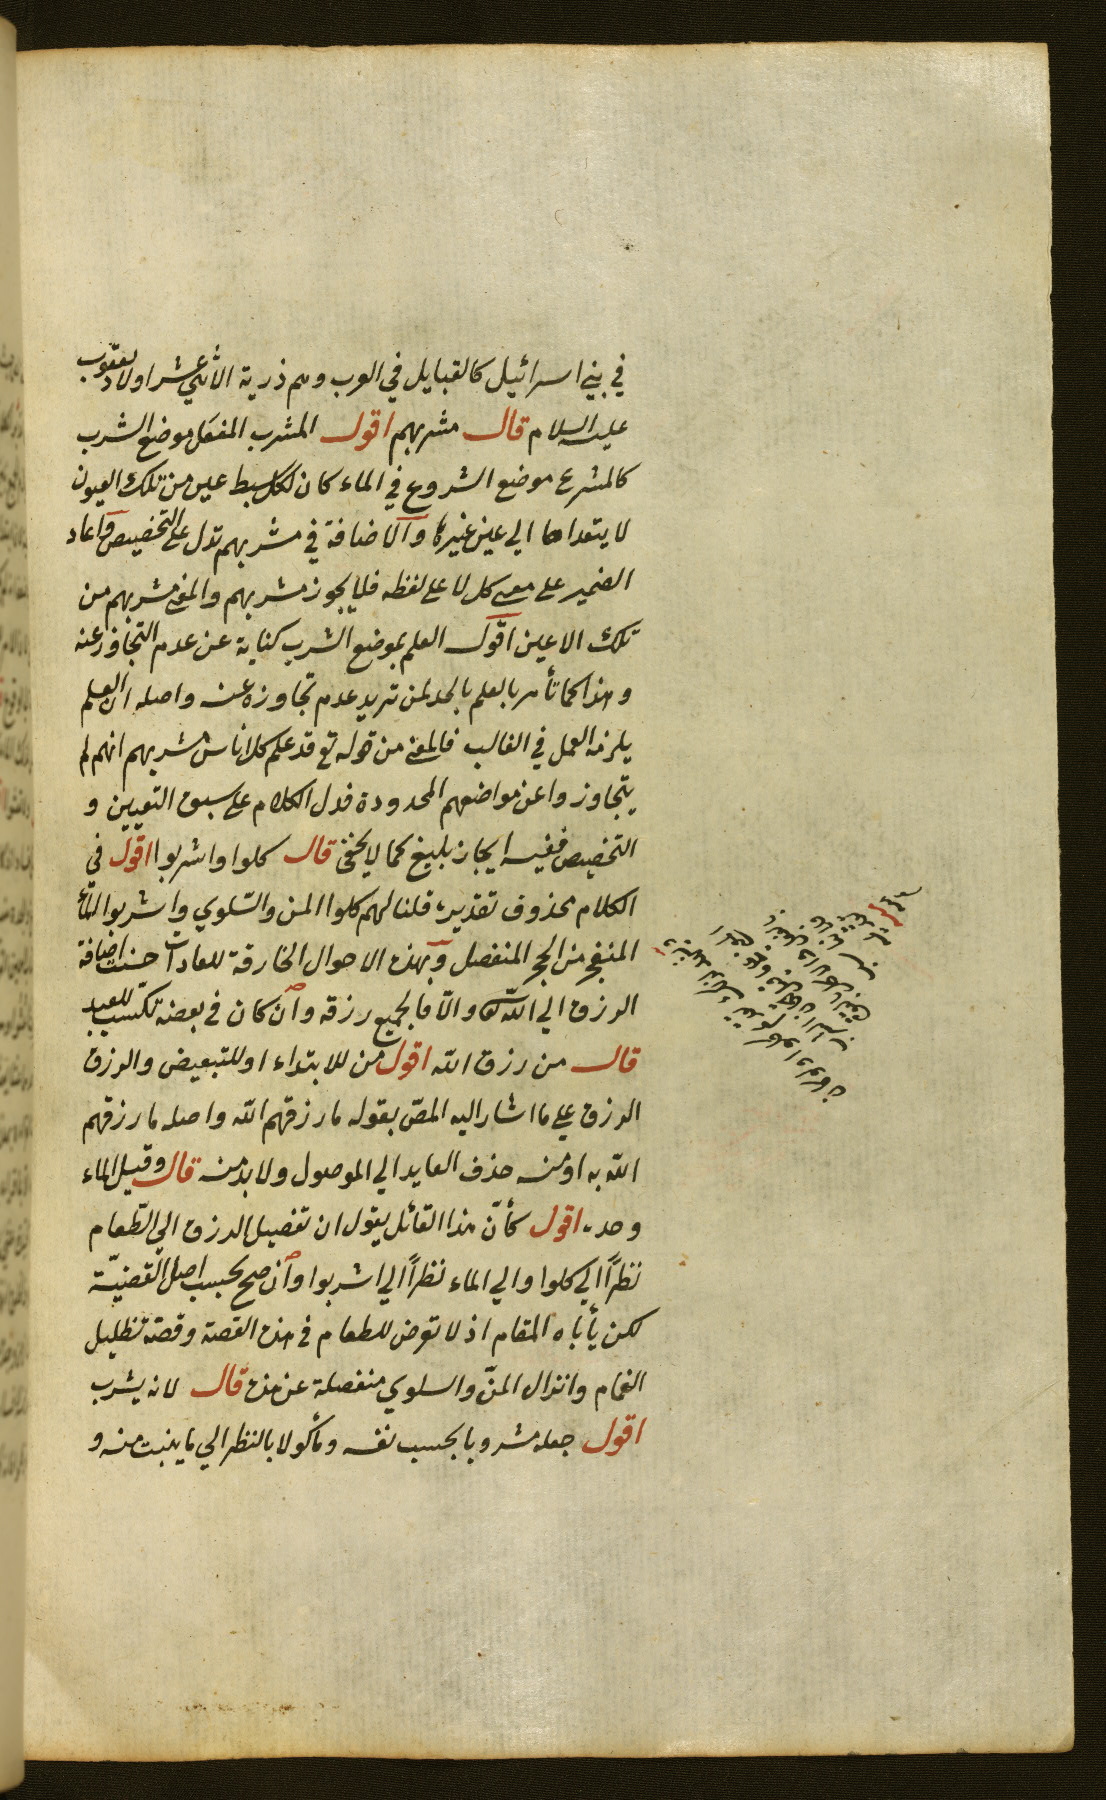 في بني اسرائيل كالقبايل في العرب وهم ذرية الاثني عشر اولاد يعقوب
عليه السلام قال مشربهم اقول المشرب المفعل موضع الشرب
كالمشرع موضع الشروع في الماء كان لكل سبط عين من تلك العيون
لا يتعداها الي عين غيرها والاضافة في مشربهم تدل علي التخصيص واعاد
الضمير علي معني كل لا علي لفظه فلا يجوز مشربهم والمعني مشربهم من
تلك الاعين اقول العلم بموضع الشرب كناية عن عدم التجاوز عنه
وهذا كما تأمر بالعلم بالحد لمن تريد عدم تجاوزه عنه واصله ان العلم
يلزمه العمل في الغالب فالمعني من قوله تع قد علم كل اناس مشربهم انهم لم
يتجاوزوا عن مواضعهم المحدودة فدل الكلام علي سبق التعيين و
التخصيص ففيه ايجاز بليغ كما لا يخفي قال كلوا واشربوا اقول في
الكلام محذوف تقديره قلنا لهم كلوا المن والسّلوي واشربوا الماء
المنفجر من الحجر المنفصل وبهذه الاحوال الخارقة للعادات حسنت اضافة
الرزق الي الله والّا فالجميع رزقه وان كان في بعضه تكسب للعبد
قال من رزق الله اقول من للابتداء او للتبعيض والرزق
الرزق علي ما اشار اليه المصّ بقوله ما رزقهم الله واصله ما رزقهم
الله به او منه حذف العايد الي الموصول ولا بد منه قال وقيل الماء
وحده اقول كأنّ هذا القائل يقول ان تفصيل الرزق الي الطّعام
نظراً الي كلوا والي الماء نظراً الي اشربوا وان صح بحسب اصل القضيّة
لكن يأباه المقام اذ لا تعرض للطعام في هذه القصة وقصة تظليل
الغمام وانزال المنّ والسلوي منفصلة عن هذه قال لانه يشرب
اقول جعله مشروبا بحسب نفسه ومأكولا بالنظر الي ما ينبت منه و